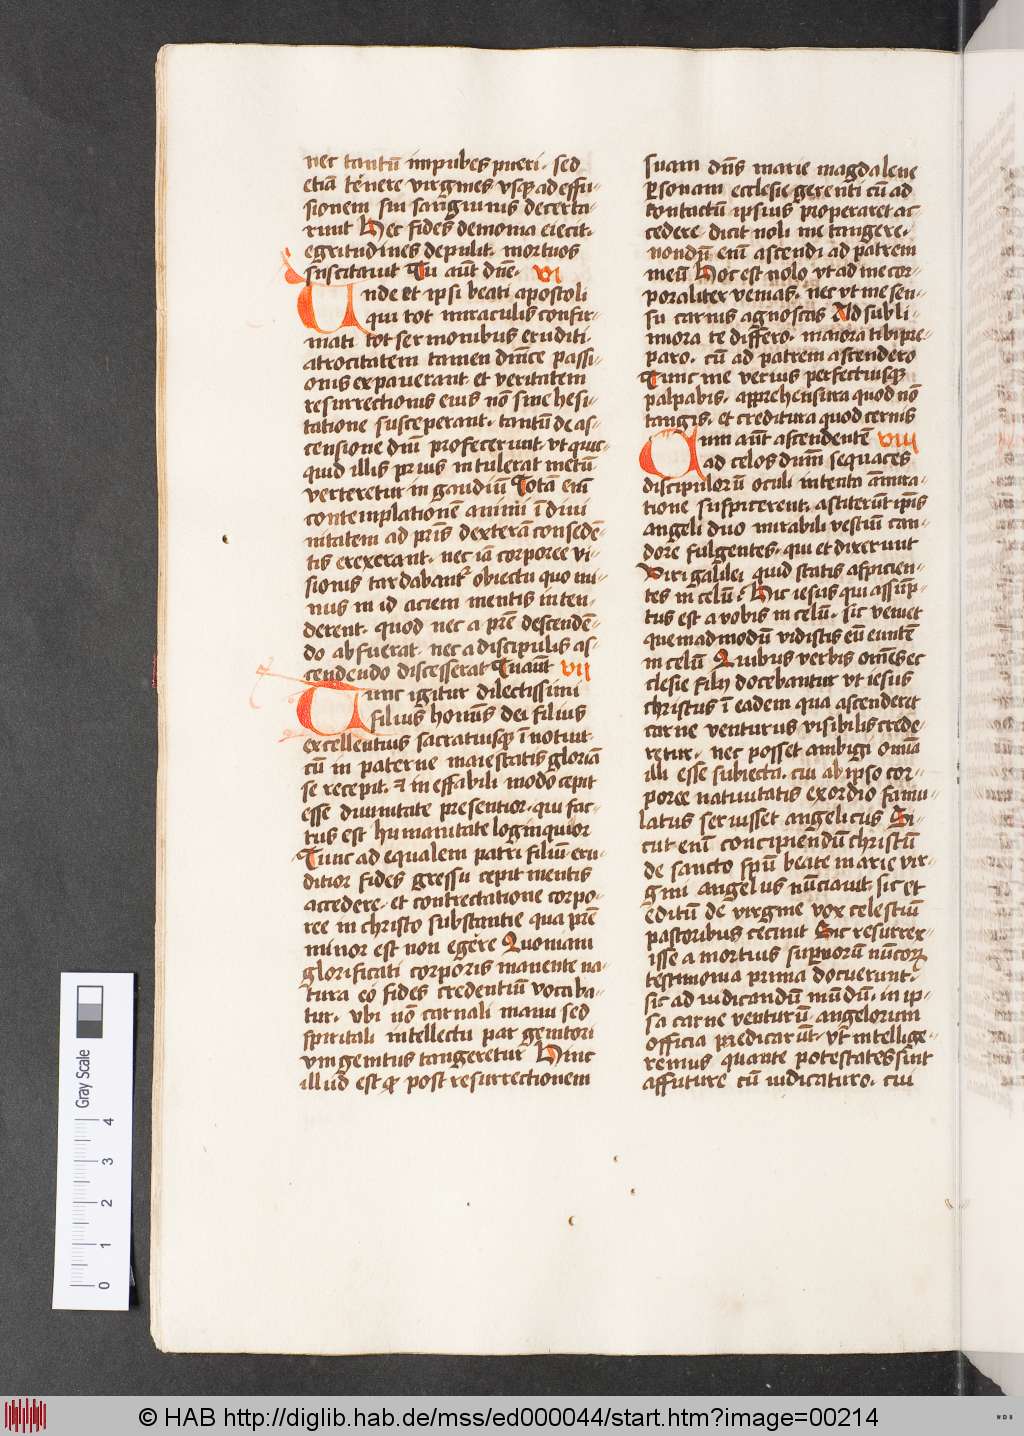 nec tantū impubes pueri · sed
etiā tenere virgines vsq̄ ad effu-
sionem sui sanguinis decerta-
runt Hec fides demonia eiecit ·
egritudines depulit · mortuos
suscitauit Tu aūt dn̄e · vi
Unde et ipsi beati apostoli
qui tot miraculis confir-
mati tot sermonibus eruditi ·
atrocitatem tamen dn̄ice passi-
onis expauerant · et veritatem
resurrectionis eius nō sine hesi-
tatione susceperant · tantū de as-
censione dn̄i profecerunt · vt quic-
quid illis prius intulerat metū
verteretur in gaudiū Totā em̄
contemplationē animi ī diui
nitatem ad pr̄is dexterā consedē-
tis erexerant · nec iā corporee vi-
sionis tardabant᷑ obiectu quo mi-
nus in id aciem mentis inten-
derent · quod nec a pr̄e descendē-
do abfuerat · nec a discipulis as-
cendendo discesserat Tu aūt vii
Tunc igitur dilectissimi
filius homīs dei filius
excellentius sacratiusq̄ īnotuit
cū in paterne maiestatis gloriā
se recepit · et ineffabili modo cepit
esse diuinitate presentior · qui fac-
tus est humanitate loginquior
Tunc ad equalem patri filiū eru-
ditior fides gressu cepit mentis
accedere · et contrectatione corpo-
ree in christo substantie qua pr̄e
minor est non egere Quoniam
glorificati corporis manente na-
tura eo fides credentiū vocaba-
tur · vbi nō carnali manu sed
spiritali intellectu par genitori
vnigenitus tangeretur Hinc
illud est qͥ post resurrectionem
suam dn̄s marie magdalene
ꝑsonam ecclesie gerenti cū ad
contactū ipsius properaret ac
cedere dicit noli me tangere ·
nondū em̄ ascendi ad patrem
meū Hoc est nolo vt ad me cor-
poraliter venias · nec vt me sen-
su carnis agnoscas Ad subli-
miora te differo · maiora tibi pre-
paro · cū ad patrem ascendero
Tunc me verius perfectiusq̄
palpabis · apprehensura quod nō
tangis · et creditura quod cernis
Cum aūt ascendentē viii
ad celos dn̄m sequaces
discipulorū oculi intento ammira-
tione suspicerent · astiterūt ip̄is
angeli duo mirabili vestiū can-
dore fulgentes · qui et dixerunt
Viri galilei quid statis aspicien-
tes in celū · Hic iesus qui assūp-
tus est a vobis in celū · sic veniet
quemadmodū vidistis eū euntē
in celū Quibus verbis om̄es ec
clesie filij docebantur vt iesus
christus ī eadem qua ascenderet
carne venturus visibilis crede-
retur · nec posset ambigi omīa
illi esse subiecta · cui ab ipso cor-
poree natiuitatis exordio famu-
latus seruisset angelicus Si
cut em̄ concipiendū christū
de sancto sp̄u beate marie vir-
gini angelus nūciauit · sic et
editū de virgine vox celestiū
pastoribus cecinit Sic resurrex-
isse a mortuis suꝑnorū nūcioꝝ
testimonia prima docuerunt ·
sic ad iudicandū mūdū · in ip-
sa carne venturū · angelorum
officia predicarūt · vt intellige-
remus quante potestates sint
affuture cū iudicaturo · cui
Gray Scale
0 1 2 3 4
© HAB http://diglib.hab.de/mss/ed000044/start.htm?image=00214